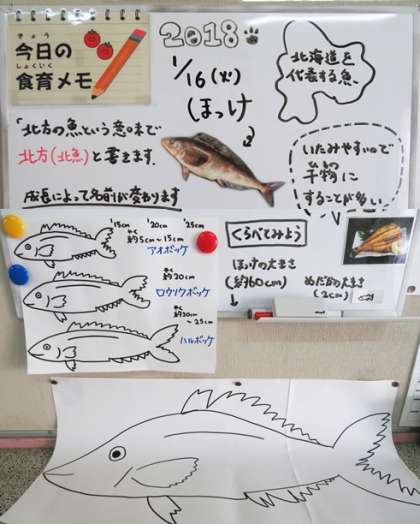 きょう
今日の
しょくいく
食育メモ
2018
1/16(火)
ほっけ
北海道を
代表する魚
「北方の魚という意味で
北方(北魚)と書きます.
成長によって名前が変わります
いたみやすいので
干物に
することが多い
'15cm '20cm '25cm
やく
約5cm~15cm
アオボッケ
やく
約20cm
ロウソクボッケ
やく
約20cm
~25cm
ハルボッケ
くらべてみよう
ほっけの大きさ
(約60cm)
↓
めだかの大きさ
(2cm)